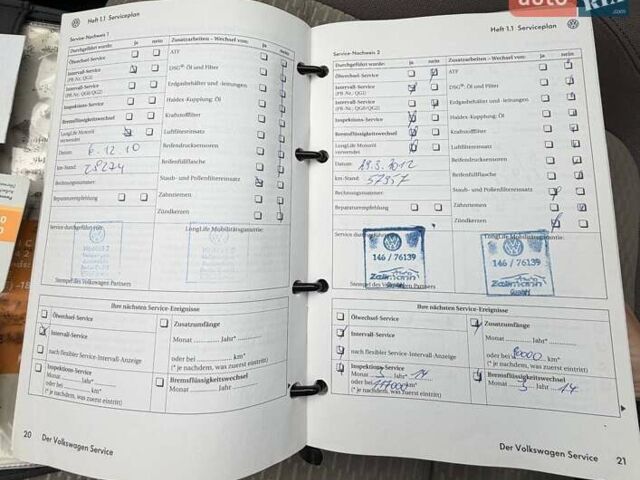 auto
RIA
Heft 1.1 Serviceplan
Service-Nachweis 1
Durchgeführt wurde: ja nein
Ölwechsel-Service
Intervall-Service
(PR-Nr.: QG1)
Intervall-Service
(PR-Nr.: QG0/QG2)
Inspektions-Service
Bremsflüssigkeitswechsel
LongLife Motoröl
verwendet
Datum: 6.12.10
km-Stand: 28274
Rechnungsnummer:
Reparaturempfehlung
Zusatzarbeiten - Wechsel von: ja nein
ATF
DSG®: Öl und Filter
Erdgasbehälter und -leitungen
Haldex-Kupplung: Öl
Kraftstofffilter
Luftfiltereinsatz
Reifendrucksensoren
Reifenfüllflasche
Staub- und Pollenfiltereinsatz
Zahnriemen
Zündkerzen
Service durchgeführt von:
LongLife Mobilitätsgarantie:
Stempel des Volkswagen Partners
Ihre nächsten Service-Ereignisse
Ölwechsel-Service
Intervall-Service
nach flexibler Service-Intervall-Anzeige
Inspektions-Service
Monat ........ Jahr ........
oder bei ........ km*
(* je nachdem, was zuerst eintritt)
Zusatzumfänge
Monat ........ Jahr* ........
oder bei ........ km*
(* je nachdem, was zuerst eintritt)
Bremsflüssigkeitswechsel
Monat ........ Jahr ........
20 Der Volkswagen Service
Heft 1.1 Serviceplan
Service-Nachweis 2
Durchgeführt wurde: ja nein
Ölwechsel-Service
Intervall-Service
(PR-Nr.: QG1)
Intervall-Service
(PR-Nr.: QG0/QG2)
Inspektions-Service
Bremsflüssigkeitswechsel
LongLife Motoröl
verwendet
Datum: 29.3.2012
km-Stand: 57957
Rechnungsnummer:
Reparaturempfehlung
Zusatzarbeiten - Wechsel von: ja nein
ATF
DSG®: Öl und Filter
Erdgasbehälter und -leitungen
Haldex-Kupplung: Öl
Kraftstofffilter
Luftfiltereinsatz
Reifendrucksensoren
Reifenfüllflasche
Staub- und Pollenfiltereinsatz
Zahnriemen
Zündkerzen
Service durchgeführt von:
LongLife Mobilitätsgarantie:
146 / 76139
146 / 76139
Stempel des Volkswagen Partners
Ihre nächsten Service-Ereignisse
Ölwechsel-Service
Intervall-Service
nach flexibler Service-Intervall-Anzeige
Inspektions-Service
Monat 3 Jahr* 14
oder bei 117000 km*
(* je nachdem, was zuerst eintritt)
Zusatzumfänge
Monat ........ Jahr* ........
oder bei 90000 km*
(* je nachdem, was zuerst eintritt)
Bremsflüssigkeitswechsel
Monat 3 Jahr 14
Der Volkswagen Service 21